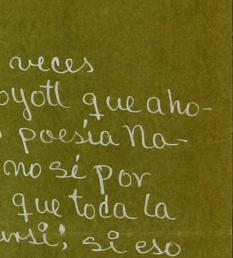 veces
oyotl que aho-
poesía Na-
no sé por
que toda la
si eso